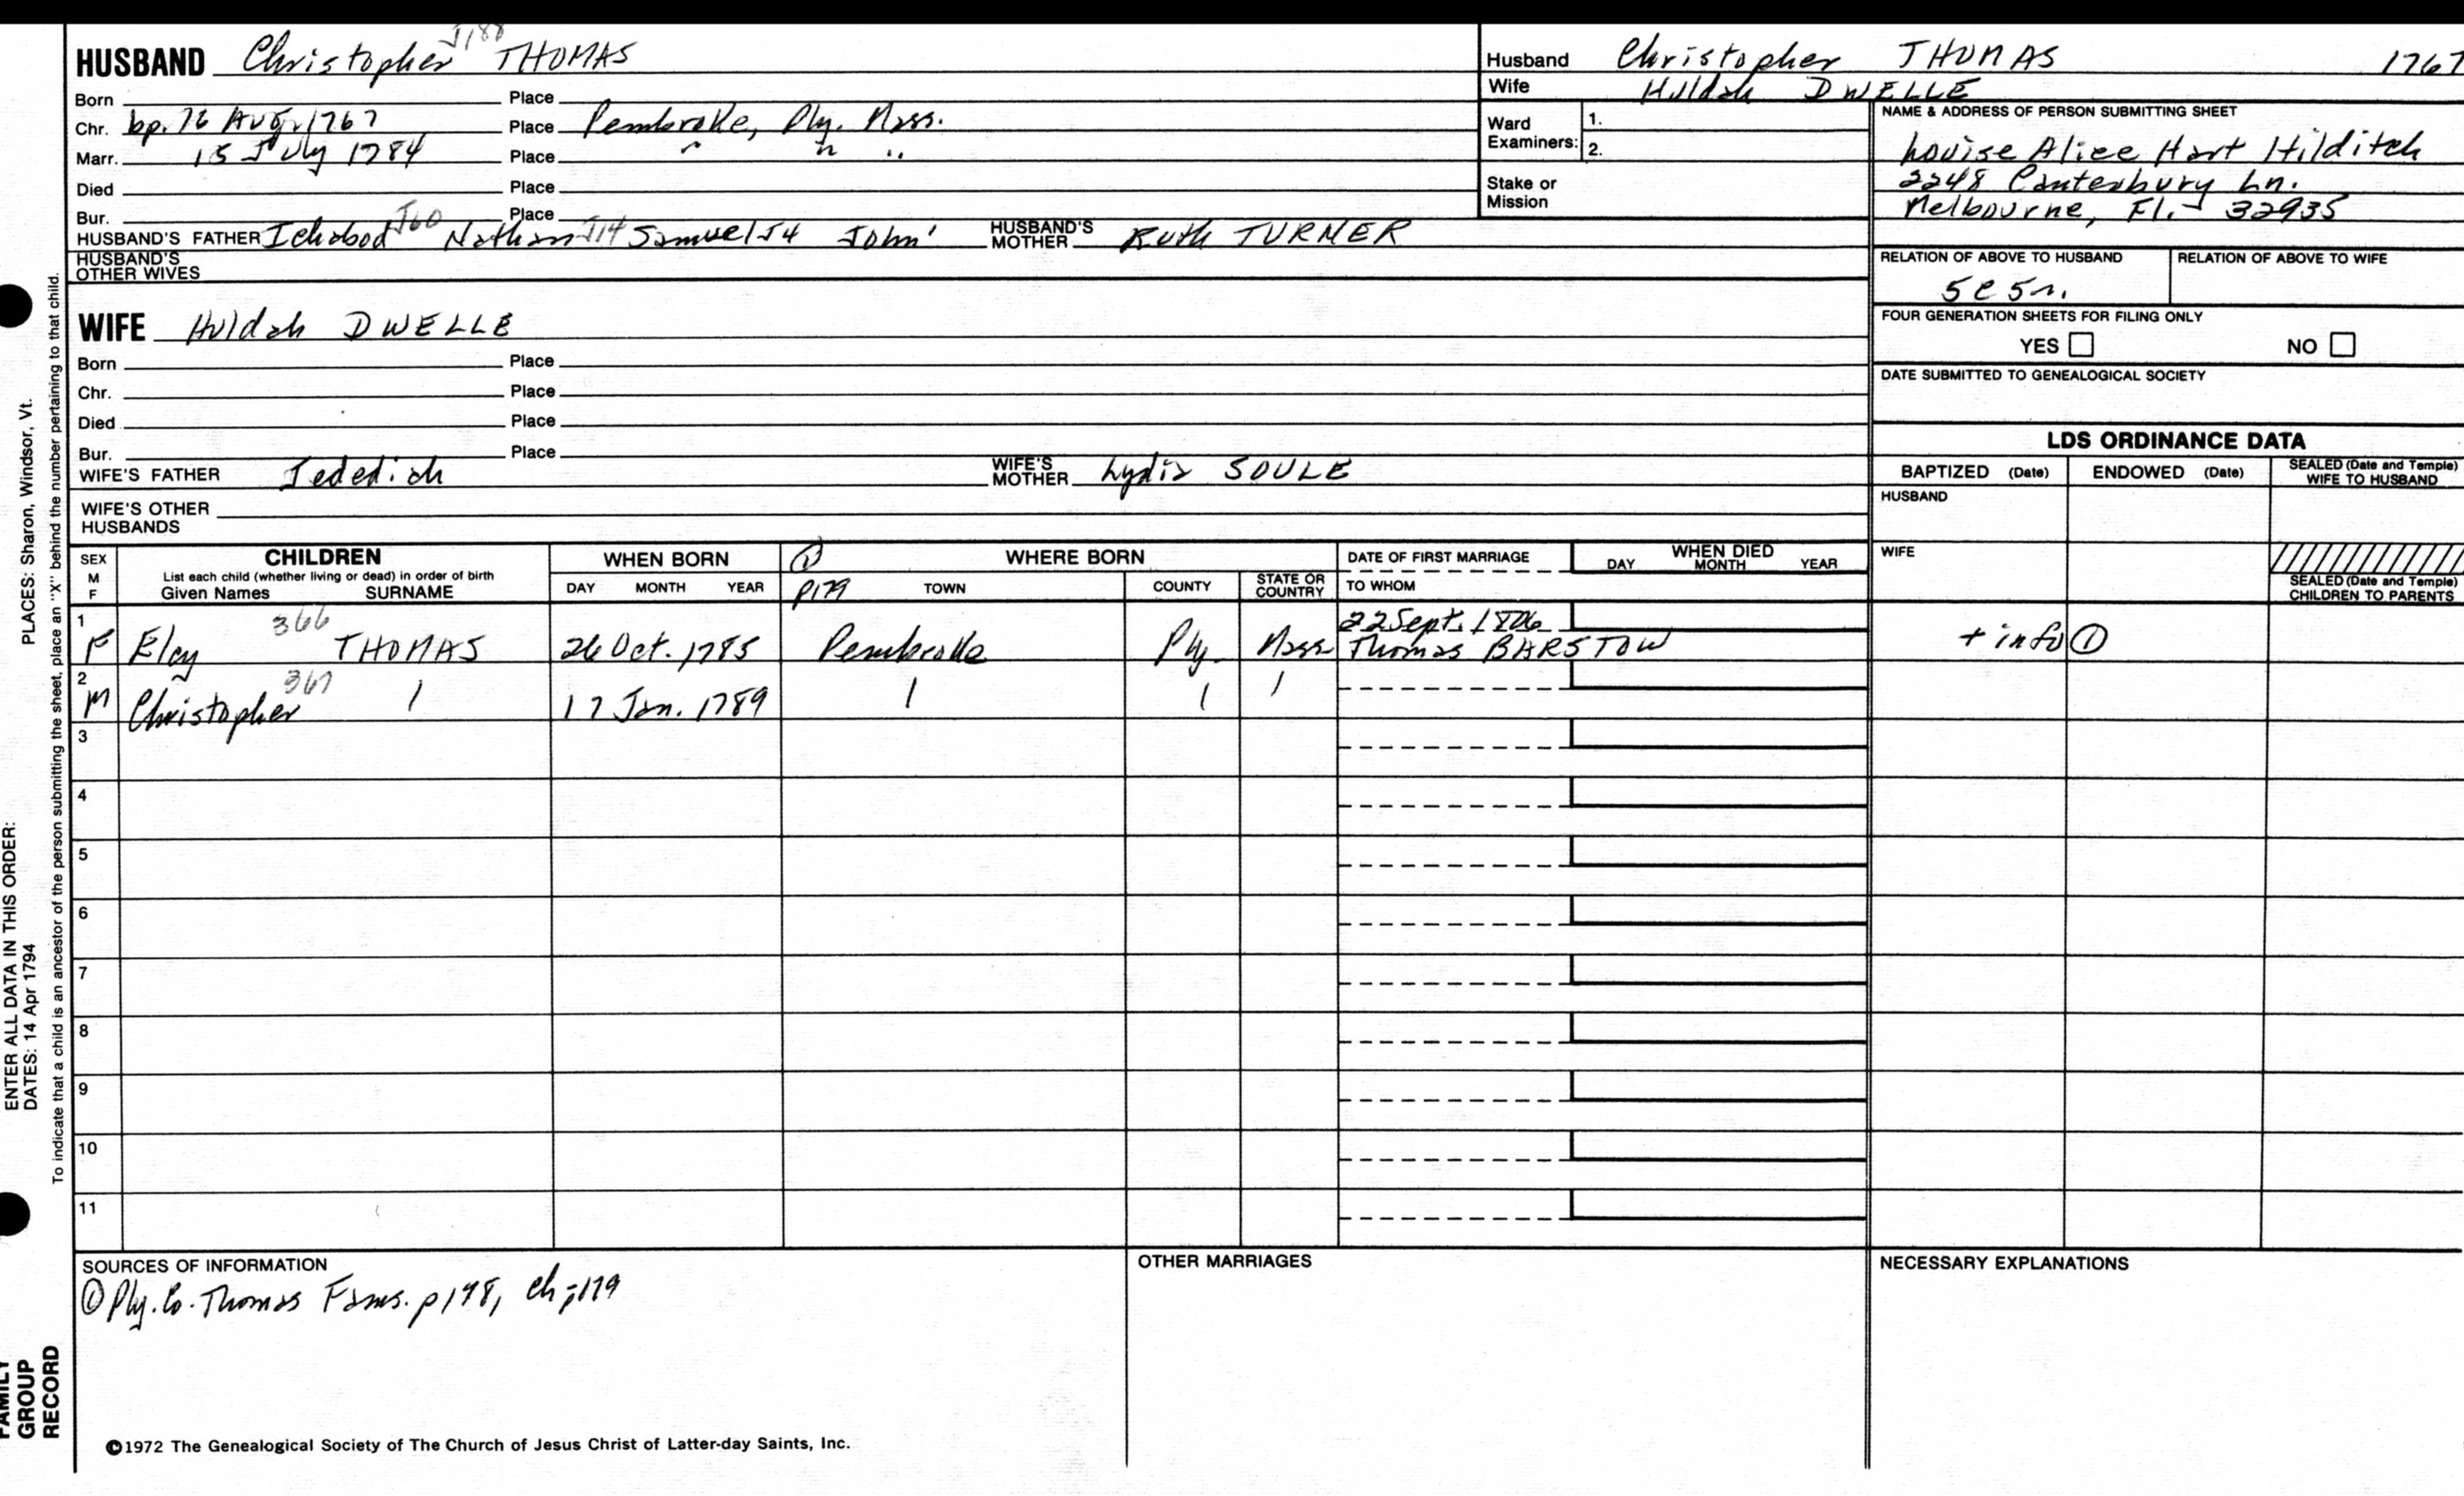 HUSBAND Christopher J180 THOMAS
Born Place
Chr. bp. 16 Aug. 1767 Place Pembroke, Ply. Mass.
Marr. 15 July 1784 Place " " "
Died Place
Bur. Place
HUSBAND'S FATHER Ichabod J60 Nathan J14 Samuel J4 John' HUSBAND'S MOTHER Ruth TURNER
HUSBAND'S OTHER WIVES
Husband Christopher THOMAS 1767
Wife Huldah DWELLE
Ward Examiners: 1.
2.
Stake or Mission
NAME & ADDRESS OF PERSON SUBMITTING SHEET
Louise Alice Hart Hilditch
2248 Canterbury Ln.
Melbourne, Fl. 32935
RELATION OF ABOVE TO HUSBAND RELATION OF ABOVE TO WIFE
5c5r.
FOUR GENERATION SHEETS FOR FILING ONLY
YES NO
DATE SUBMITTED TO GENEALOGICAL SOCIETY
WIFE Huldah DWELLE
Born Place
Chr. Place
Died Place
Bur. Place
WIFE'S FATHER Jedediah WIFE'S MOTHER Lydia SOULE
WIFE'S OTHER HUSBANDS
LDS ORDINANCE DATA
BAPTIZED (Date) ENDOWED (Date) SEALED (Date and Temple) WIFE TO HUSBAND
HUSBAND
WIFE
SEALED (Date and Temple) CHILDREN TO PARENTS
SEX M F CHILDREN WHEN BORN ① WHERE BORN DATE OF FIRST MARRIAGE WHEN DIED
List each child (whether living or dead) in order of birth
Given Names SURNAME DAY MONTH YEAR p179 TOWN COUNTY STATE OR COUNTRY TO WHOM DAY MONTH YEAR
1 366 22 Sept. 1806
F Elcy THOMAS 26 Oct. 1785 Pembroke Ply. Mass Thomas BARSTOW + info ①
2 367
M Christopher 17 Jan. 1789
3
4
5
6
7
8
9
10
11
SOURCES OF INFORMATION
① Ply. Co. Thomas Fams. p 148, ch; 179
OTHER MARRIAGES
NECESSARY EXPLANATIONS
©1972 The Genealogical Society of The Church of Jesus Christ of Latter-day Saints, Inc.
FAMILY GROUP RECORD
ENTER ALL DATA IN THIS ORDER:
DATES: 14 Apr 1794 PLACES: Sharon, Windsor, Vt.
To indicate that a child is an ancestor of the person submitting the sheet, place an "X" behind the number pertaining to that child.